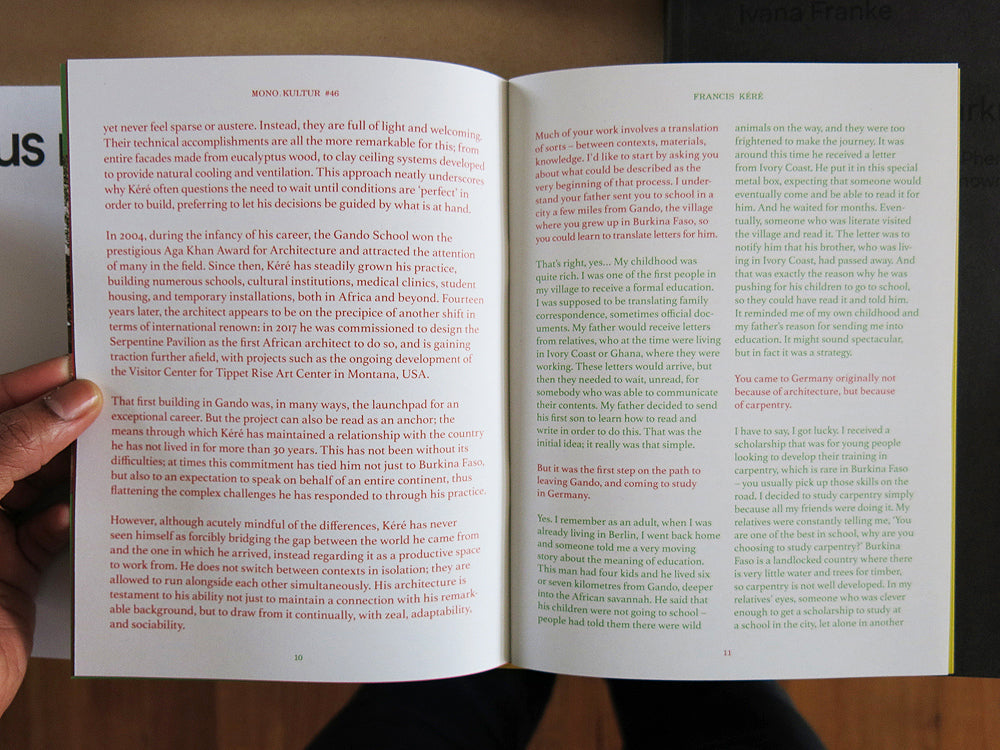 Ivana Franke
us
MONO.KULTUR #46
yet never feel sparse or austere. Instead, they are full of light and welcoming.
Their technical accomplishments are all the more remarkable for this; from
entire facades made from eucalyptus wood, to clay ceiling systems developed
to provide natural cooling and ventilation. This approach neatly underscores
why Kéré often questions the need to wait until conditions are ‘perfect’ in
order to build, preferring to let his decisions be guided by what is at hand.
In 2004, during the infancy of his career, the Gando School won the
prestigious Aga Khan Award for Architecture and attracted the attention
of many in the field. Since then, Kéré has steadily grown his practice,
building numerous schools, cultural institutions, medical clinics, student
housing, and temporary installations, both in Africa and beyond. Fourteen
years later, the architect appears to be on the precipice of another shift in
terms of international renown: in 2017 he was commissioned to design the
Serpentine Pavilion as the first African architect to do so, and is gaining
traction further afield, with projects such as the ongoing development of
the Visitor Center for Tippet Rise Art Center in Montana, USA.
That first building in Gando was, in many ways, the launchpad for an
exceptional career. But the project can also be read as an anchor; the
means through which Kéré has maintained a relationship with the country
he has not lived in for more than 30 years. This has not been without its
difficulties; at times this commitment has tied him not just to Burkina Faso,
but also to an expectation to speak on behalf of an entire continent, thus
flattening the complex challenges he has responded to through his practice.
However, although acutely mindful of the differences, Kéré has never
seen himself as forcibly bridging the gap between the world he came from
and the one in which he arrived, instead regarding it as a productive space
to work from. He does not switch between contexts in isolation; they are
allowed to run alongside each other simultaneously. His architecture is
testament to his ability not just to maintain a connection with his remark-
able background, but to draw from it continually, with zeal, adaptability,
and sociability.
10
FRANCIS KÉRÉ
Much of your work involves a translation
of sorts – between contexts, materials,
knowledge. I’d like to start by asking you
about what could be described as the
very beginning of that process. I under-
stand your father sent you to school in a
city a few miles from Gando, the village
where you grew up in Burkina Faso, so
you could learn to translate letters for him.
That’s right, yes... My childhood was
quite rich. I was one of the first people in
my village to receive a formal education.
I was supposed to be translating family
correspondence, sometimes official doc-
uments. My father would receive letters
from relatives, who at the time were living
in Ivory Coast or Ghana, where they were
working. These letters would arrive, but
then they needed to wait, unread, for
somebody who was able to communicate
their contents. My father decided to send
his first son to learn how to read and
write in order to do this. That was the
initial idea; it really was that simple.
But it was the first step on the path to
leaving Gando, and coming to study
in Germany.
Yes. I remember as an adult, when I was
already living in Berlin, I went back home
and someone told me a very moving
story about the meaning of education.
This man had four kids and he lived six
or seven kilometres from Gando, deeper
into the African savannah. He said that
his children were not going to school –
people had told them there were wild
animals on the way, and they were too
frightened to make the journey. It was
around this time he received a letter
from Ivory Coast. He put it in this special
metal box, expecting that someone would
eventually come and be able to read it for
him. And he waited for months. Even-
tually, someone who was literate visited
the village and read it. The letter was to
notify him that his brother, who was liv-
ing in Ivory Coast, had passed away. And
that was exactly the reason why he was
pushing for his children to go to school,
so they could have read it and told him.
It reminded me of my own childhood and
my father’s reason for sending me into
education. It might sound spectacular,
but in fact it was a strategy.
You came to Germany originally not
because of architecture, but because
of carpentry.
I have to say, I got lucky. I received a
scholarship that was for young people
looking to develop their training in
carpentry, which is rare in Burkina Faso
– you usually pick up those skills on the
road. I decided to study carpentry simply
because all my friends were doing it. My
relatives were constantly telling me, ‘You
are one of the best in school, why are you
choosing to study carpentry?’ Burkina
Faso is a landlocked country where there
is very little water and trees for timber,
so carpentry is not well developed. In my
relatives’ eyes, someone who was clever
enough to get a scholarship to study at
a school in the city, let alone in another
11